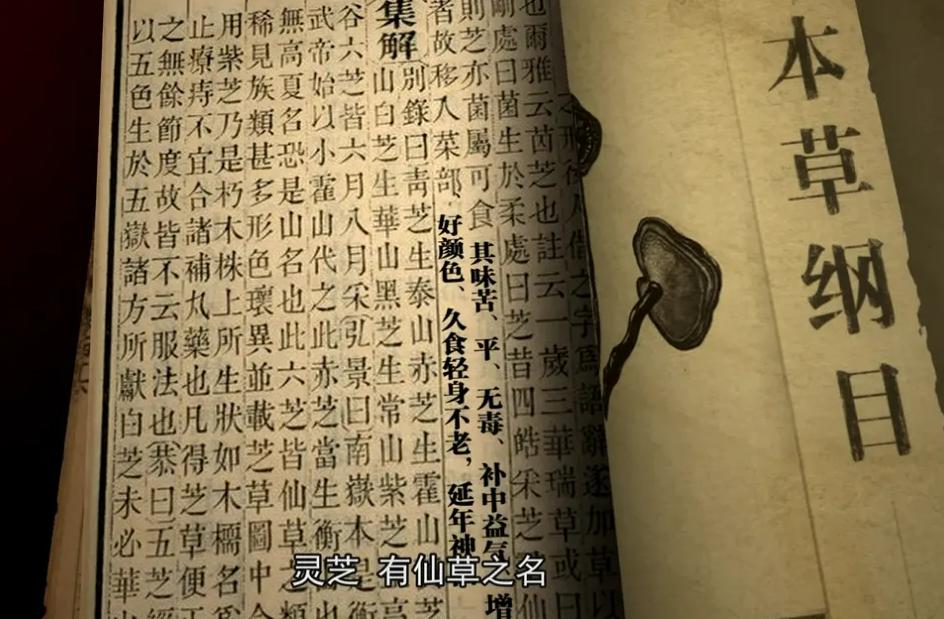 本草纲目
之形後人借之字爲語辭遂加草以
也爾雅云茵芝也註云一歲三華瑞草或曰
剛處曰菌生於柔處曰芝昔四皓采芝仙
則芝亦菌屬可食
其味苦、平、无毒、补中益气 增
者故移入菜部
好颜色、久食轻身不老，延年神
集解
別錄曰靑芝生泰山赤芝生霍山
山白芝生華山黑芝生常山紫芝高
谷六芝皆六月八月采弘景曰南嶽本是衡
武帝始以小霍山代之此赤芝當生衡也
無高夏名恐是山名也此六芝皆仙草之類
稀見族類甚多形色瓌異並載芝草圖中
用紫芝乃是朽木株上所生狀如木檽名爲
止療痔不宜合諸補丸藥也凡得芝草便
之無餘節度故皆不云服法也恭曰五芝經
以五色生於五嶽諸方所獻白芝未必華山
灵芝 有仙草之名